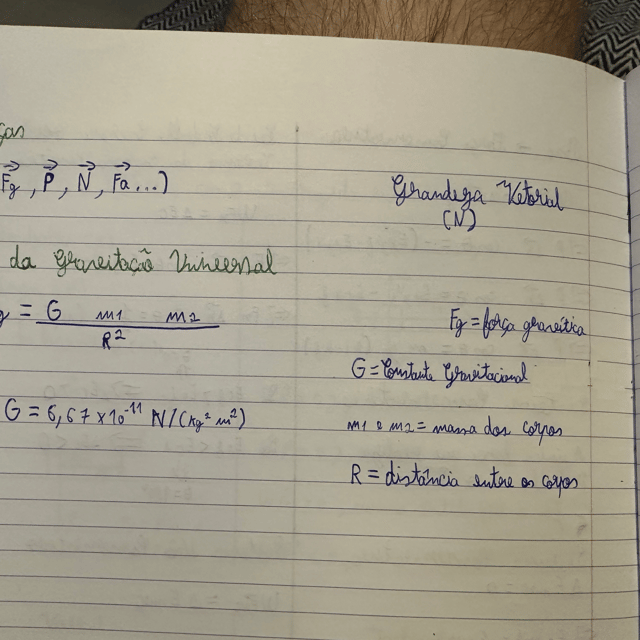 ças
Fg, P, N, Fa...)
Grandeza Vetorial
(N)
da Gravitação Universal
g = G m1 m2
R²
Fg = força gravítica
G = Constante Gravitacional
G = 6,67 x 10⁻¹¹ N/(Kg² m²)
m1 e m2 = massa dos corpos
R = distância entre os corpos